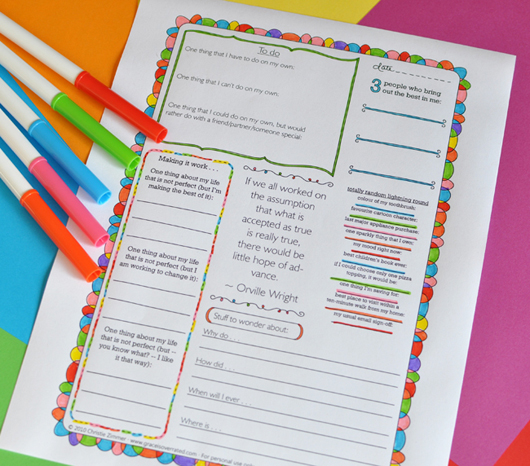 To do
One thing that I have to do on my own:
One thing that I can't do on my own:
One thing that I could do on my own, but would
rather do with a friend/partner/someone special:
date
3 people who bring
out the best in me:
totally random lightning round
colour of my toothbrush:
favourite cartoon character:
last major appliance purchase:
one sparkly thing that I own:
my mood right now:
best children's book ever:
if I could choose only one pizza
topping, it would be:
one thing I'm saving for:
best place to visit within a
ten minute walk from my home:
my usual email sign-off:
Making it work . . .
One thing about my life
that is not perfect (but I'm
making the best of it):
One thing about my life
that is not perfect (but I
am working to change it):
One thing about my life
that is not perfect (but –
you know what? – I like
it that way):
If we all worked on
the assumption
that what is
accepted as true
is really true,
there would be
little hope of ad-
vance.
~ Orville Wright
Stuff to wonder about:
Why do . . .
How did . . .
When will I ever . . .
Where is . . .
© 2015 Christie Zimmer www.gracelaced
For personal use